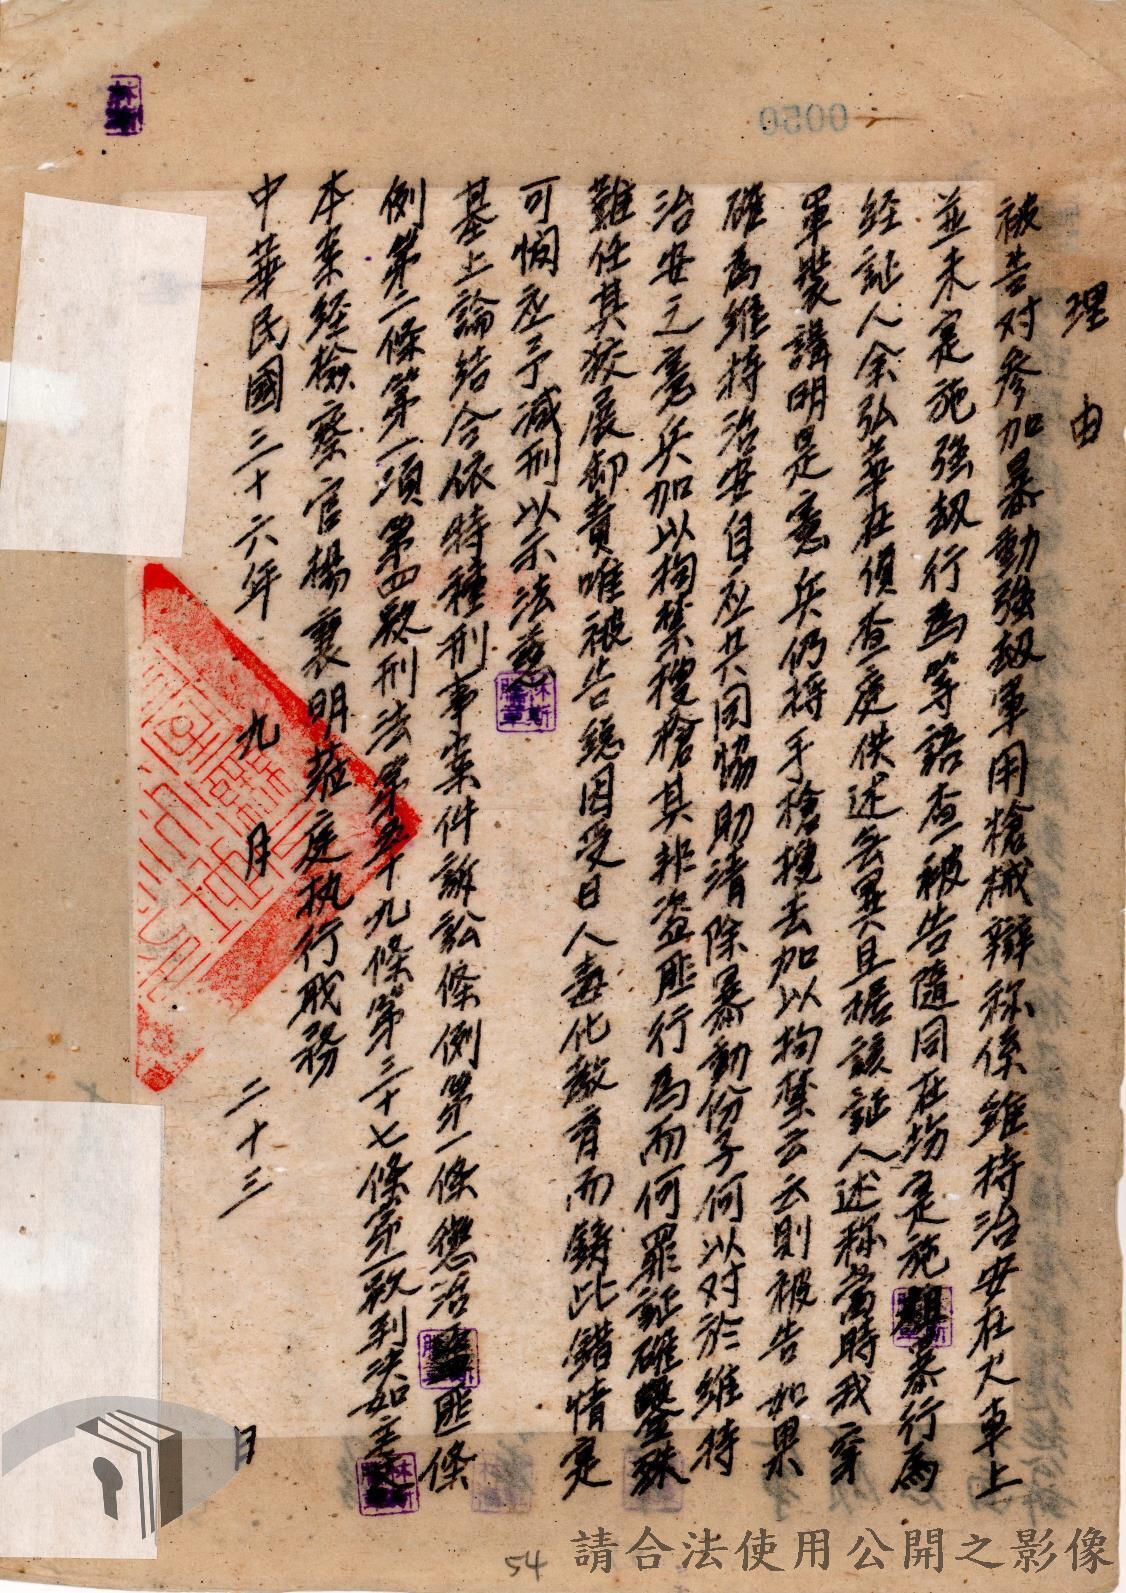 0050
理由
被告对參加暴動強劫軍用槍械辯称係維持治安在火車上
並未実施強劫行為等語查被告隨同在場実施暴行為
経証人余弘華在偵查庭供述無異且据該証人述称當時我穿
軍裝諱明是憲兵仍将手槍搜去加以拘禁云云則被告如果
確為維持治安自应共同協助清除暴動份子何以对於維持
治安之憲兵加以拘禁搜槍其非盗匪行為而何罪証確鑿殊
難任其狡展卸責唯被告總因受日人毒化教育而鑄此錯情実
可憫应予減刑以示法慈
基上論結合依特種刑事案件訴訟條例第一條懲治匪條
例第二條第一項第四款刑法第五十九條第三十七條第一款判决如主文
本案経檢察官楊襄明蒞庭执行职務
中華民國三十六年九月二十三日
林斯
54
請合法使用公開之影像